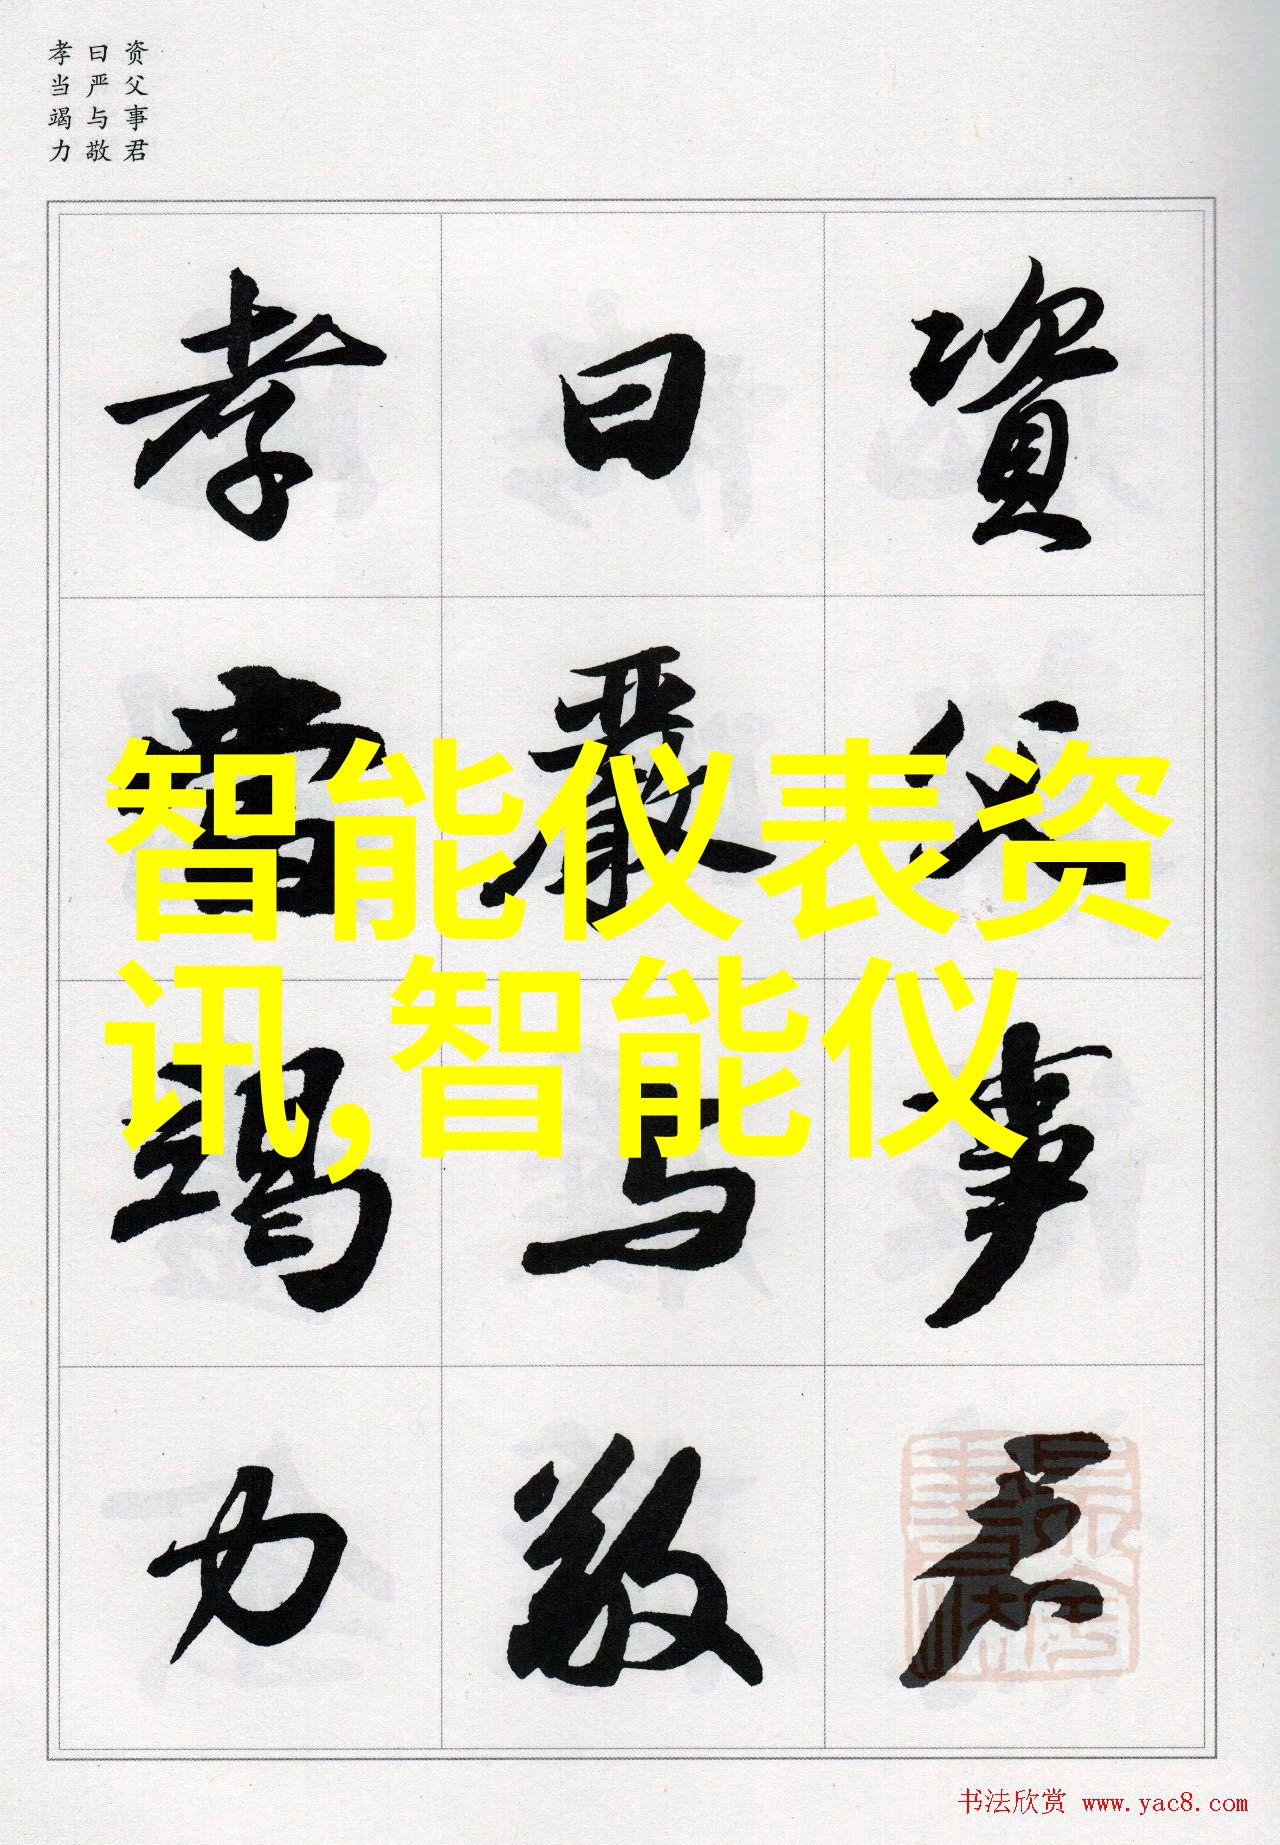 资父事君
曰严与敬
孝当竭力
資父事君
曰嚴与敬
孝當竭力
智能仪表资
讯,智能仪
书法欣赏 www.yac8.com